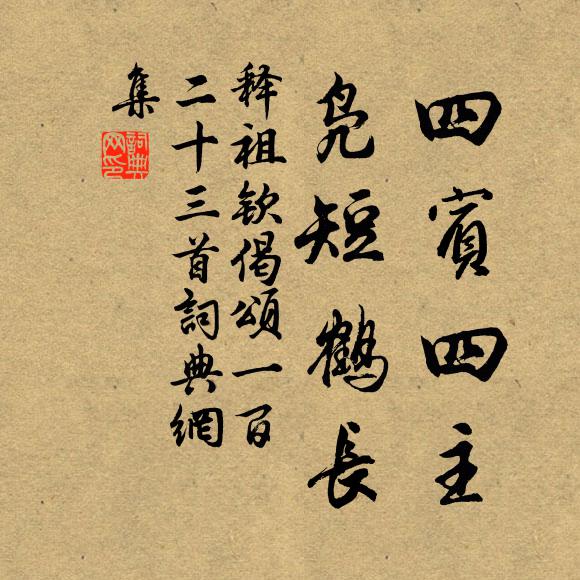 四賓四主
鳧短鶴長
释祖欽偈頌一百
二十三首詞典網
集
詞典
网印